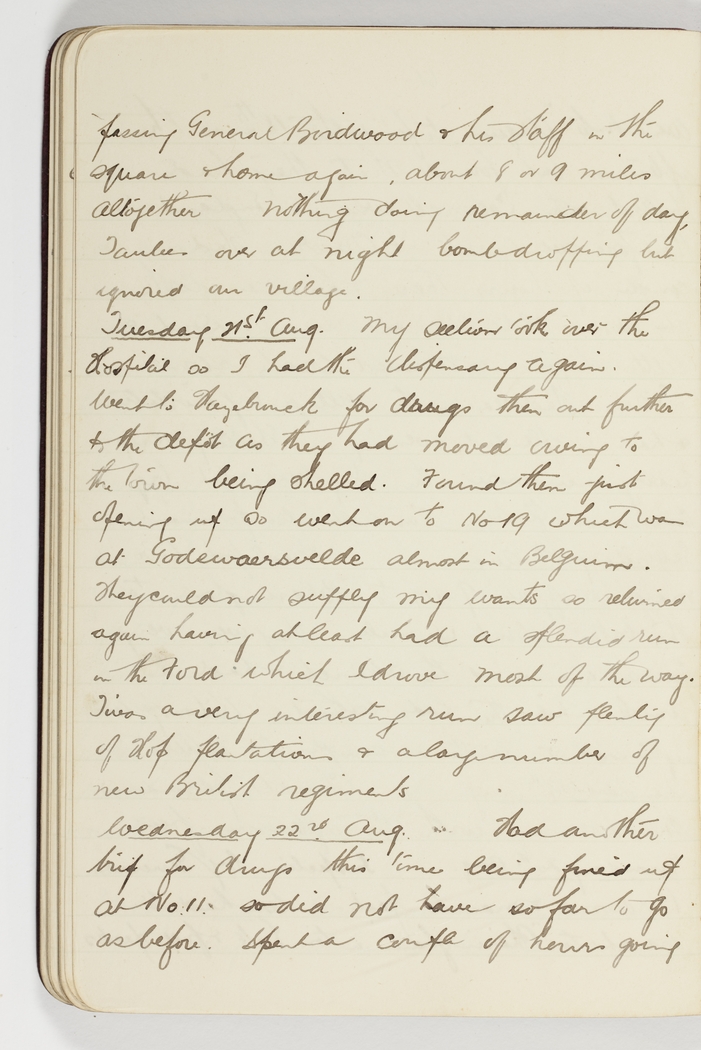 passing General Birdwood & his staff in the
square & home again, about 8 or 9 miles
altogether nothing doing remainder of day,
Taubes over at night bombdropping but
ignored our village.
Tuesday 21st Aug. My section took over the
Hospital so I had the dispensary again.
Went to Hazebrouck for drugs then out further
to the depôt as they had moved owing to
the town being shelled. Found them just
opening up so went on to No 19 which was
at Godewaersvelde almost in Belguim.
They could not supply my wants so returned
again having at least had a splendid run
in the Ford which I drove most of the way.
Twas a very interesting run saw plenty
of Hop plantations & a large number of
new British regiments
Wednesday 22nd Aug. Had another
trip for drugs this time being fixed up
at No. 11. so did not have so far to go
as before. Spent a couple of hours going